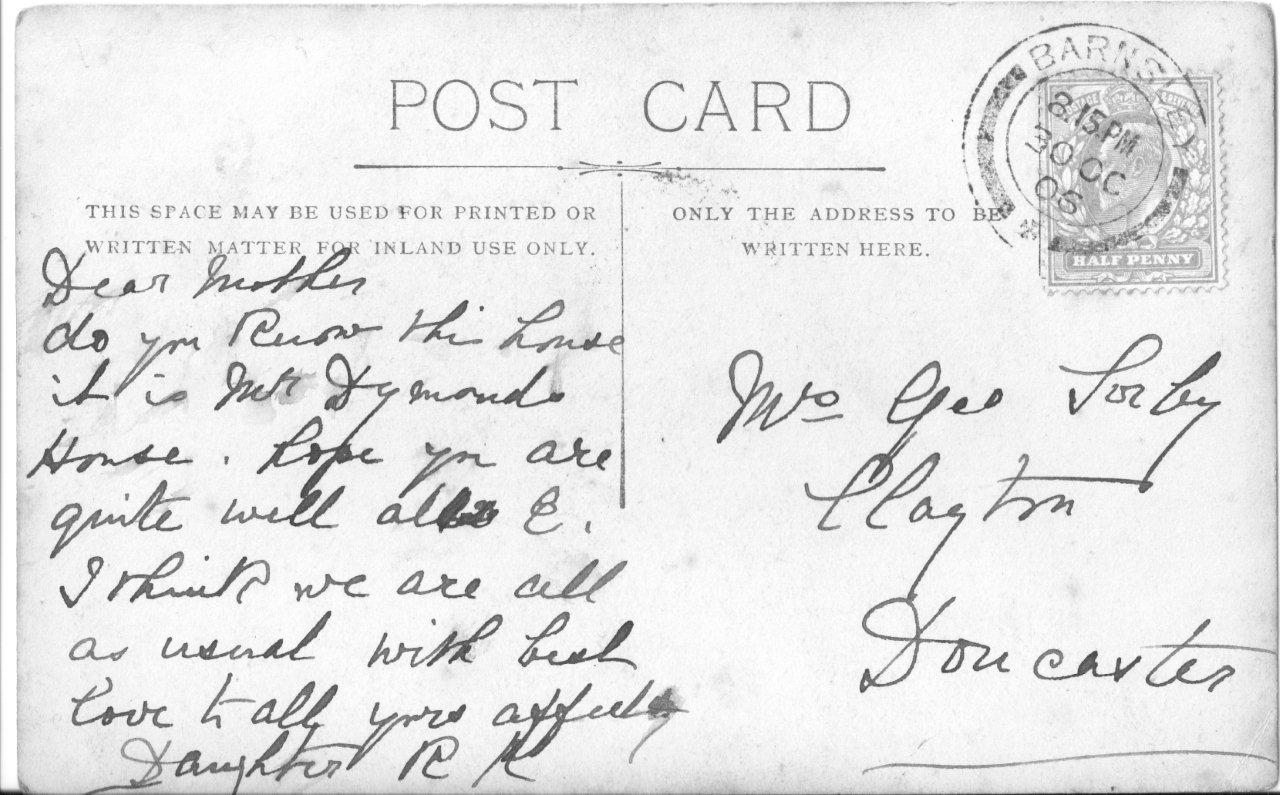 POST CARD
THIS SPACE MAY BE USED FOR PRINTED OR
WRITTEN MATTER FOR INLAND USE ONLY.
ONLY THE ADDRESS TO BE
WRITTEN HERE.
BARNSLEY
8.15 PM
30 OC
HALF PENNY
Dear Mother
do you know this house
it is Mr Dymonds
House. hope you are
quite well all E.
I think we are all
as usual with best
love to all yours affectly
Daughter R K
Mrs Geo Sorby
Clayton
Doncaster